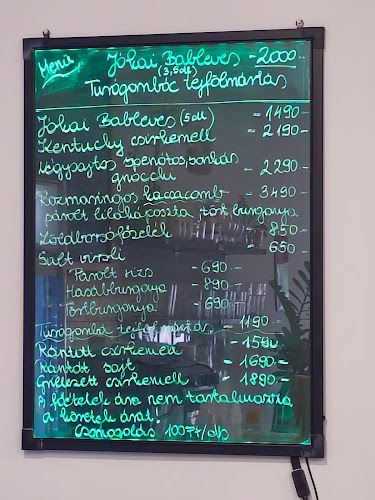 Menü
Jókai Bableves - 2000.-
(3,5dl)
Túrógombóc tejfölmártás
Jókai Bableves (5dl) - 1490.-
Kentucky csirkemell - 2190.-
Négysajtos spenótos, sonkás
gnocchi - 2290.-
Rozmaringos kacsacomb - 3490.-
párolt lilakáposzta, tört burgonya
Zöldborsófőzelék - 850.-
Sült virsli 650
Párolt rizs - 690.-
Hasábburgonya - 890.-
Törtburgonya - 690.-
Túrógombóc tejfölmártás - 1190.-
Rántott csirkemell - 1590.-
Rántott sajt - 1690.-
Grillezett csirkemell - 1890.-
A főételek ára nem tartalmazza
a köretek árát.
Csomagolás 100Ft/db